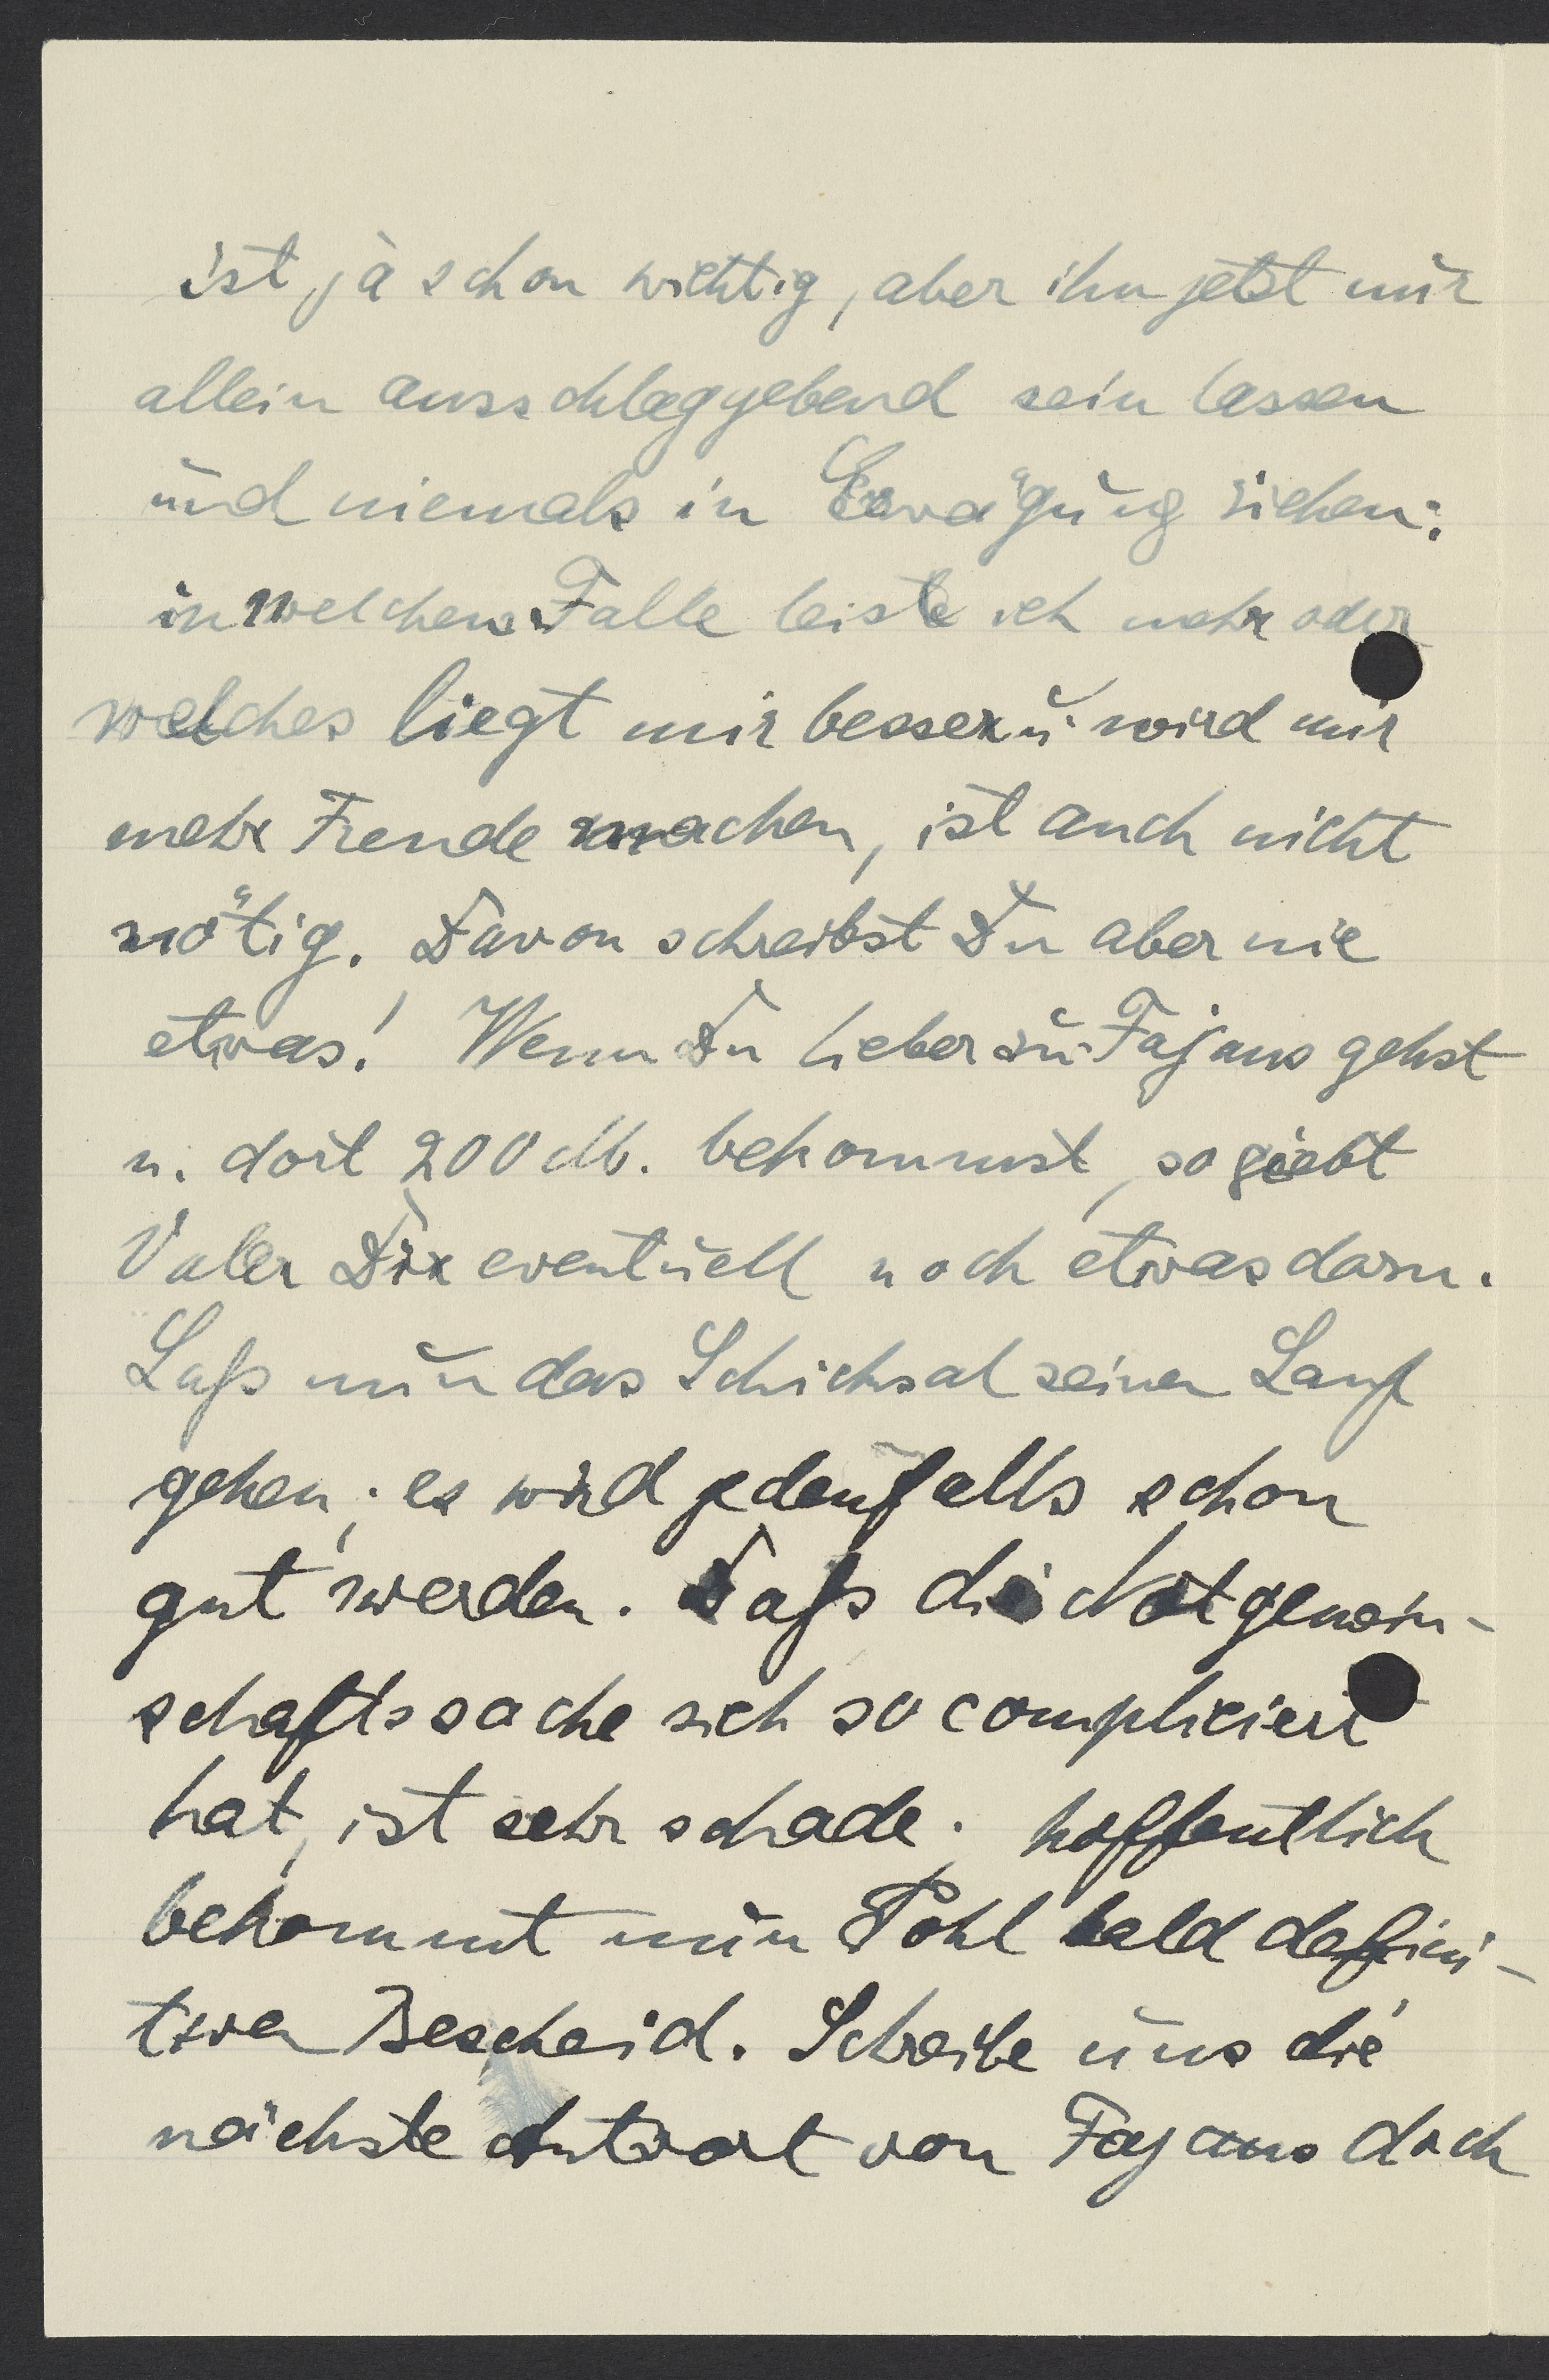 ist ja schon wichtig, aber ihn jetzt nur
allein ausschlaggebend sein lassen
und niemals in Erwägung ziehen:
in welchem Falle leiste ich mehr oder
welches liegt mir besser u. wird mir
mehr Freude machen, ist auch nicht
nötig. Davon schreibst Du aber nie
etwas! Wenn Du lieber zu Fajans gehst
u. dort 200 M. bekommst, so giebt
Vater Dir eventuell noch etwas dazu.
Laß nun das Schicksal seinen Lauf
gehen; es wird jedenfalls schon
gut werden. Daß die Notgemein-
schaftssache sich so compliciert
hat, ist sehr schade; hoffentlich
bekommt nun Pohl bald defini-
tiven Bescheid. Schreibe uns die
nächste Antwort von Fajans doch